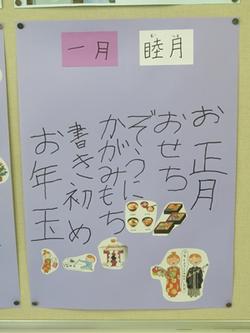 一月
睦月
お正月
おせち
ぞうに
かがみもち
書き初め
お年玉